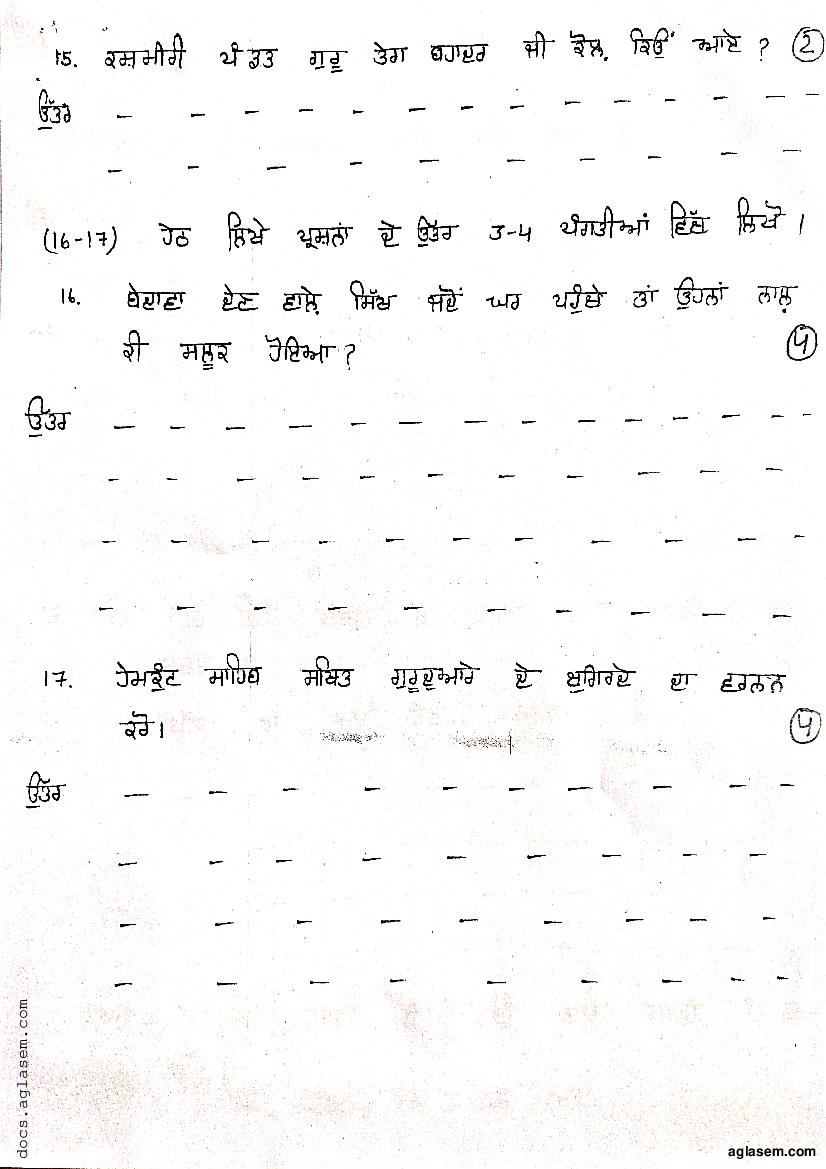 15. ਕਸ਼ਮੀਰੀ ਪੰਡਤ ਗੁਰੂ ਤੇਗ ਬਹਾਦਰ ਜੀ ਕੋਲ਼ ਕਿਉਂ ਆਏ ? (2)
ਉੱਤਰ
(16-17) ਹੇਠ ਲਿਖੇ ਪ੍ਰਸ਼ਨਾਂ ਦੇ ਉੱਤਰ 3-4 ਪੰਗਤੀਆਂ ਵਿੱਚ ਲਿਖੋ ।
16. ਬੇਦਾਵਾ ਦੇਣ ਵਾਲ਼ੇ ਸਿੱਖ ਜਦੋਂ ਘਰ ਪਹੁੰਚੇ ਤਾਂ ਉਹਨਾਂ ਨਾਲ਼
ਕੀ ਸਲੂਕ ਹੋਇਆ ? (4)
ਉੱਤਰ
17. ਹੇਮਕੁੰਟ ਸਾਹਿਬ ਸਥਿਤ ਗੁਰੂਦੁਆਰੇ ਦੇ ਚੁਗਿਰਦੇ ਦਾ ਵਰਨਣ
ਕਰੋ। (4)
ਉੱਤਰ
docs.aglasem.com
aglasem.com